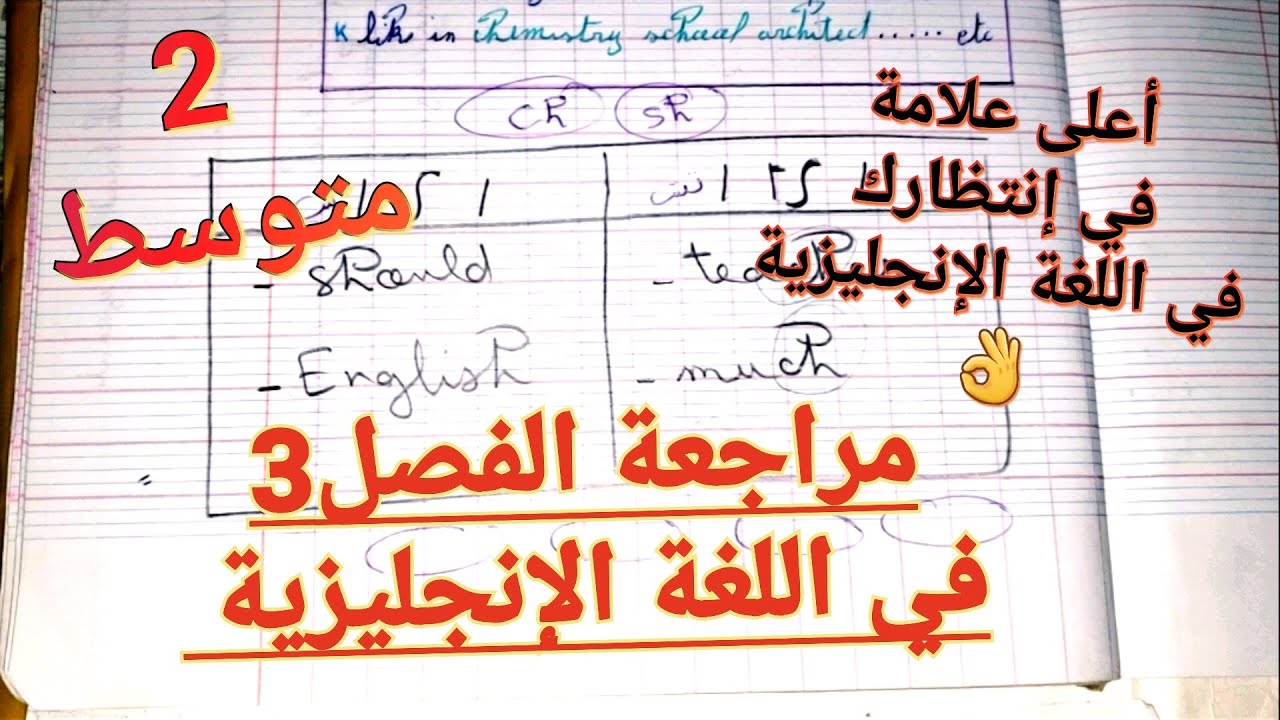 K like in chemistry school architect..... etc
ch sh
2
متوسط
أعلى علامة
في إنتظارك
في اللغة الإنجليزية
/ ʃ / ش
/ tʃ / تش
- should
- English
- much
مراجعة الفصل3
في اللغة الإنجليزية